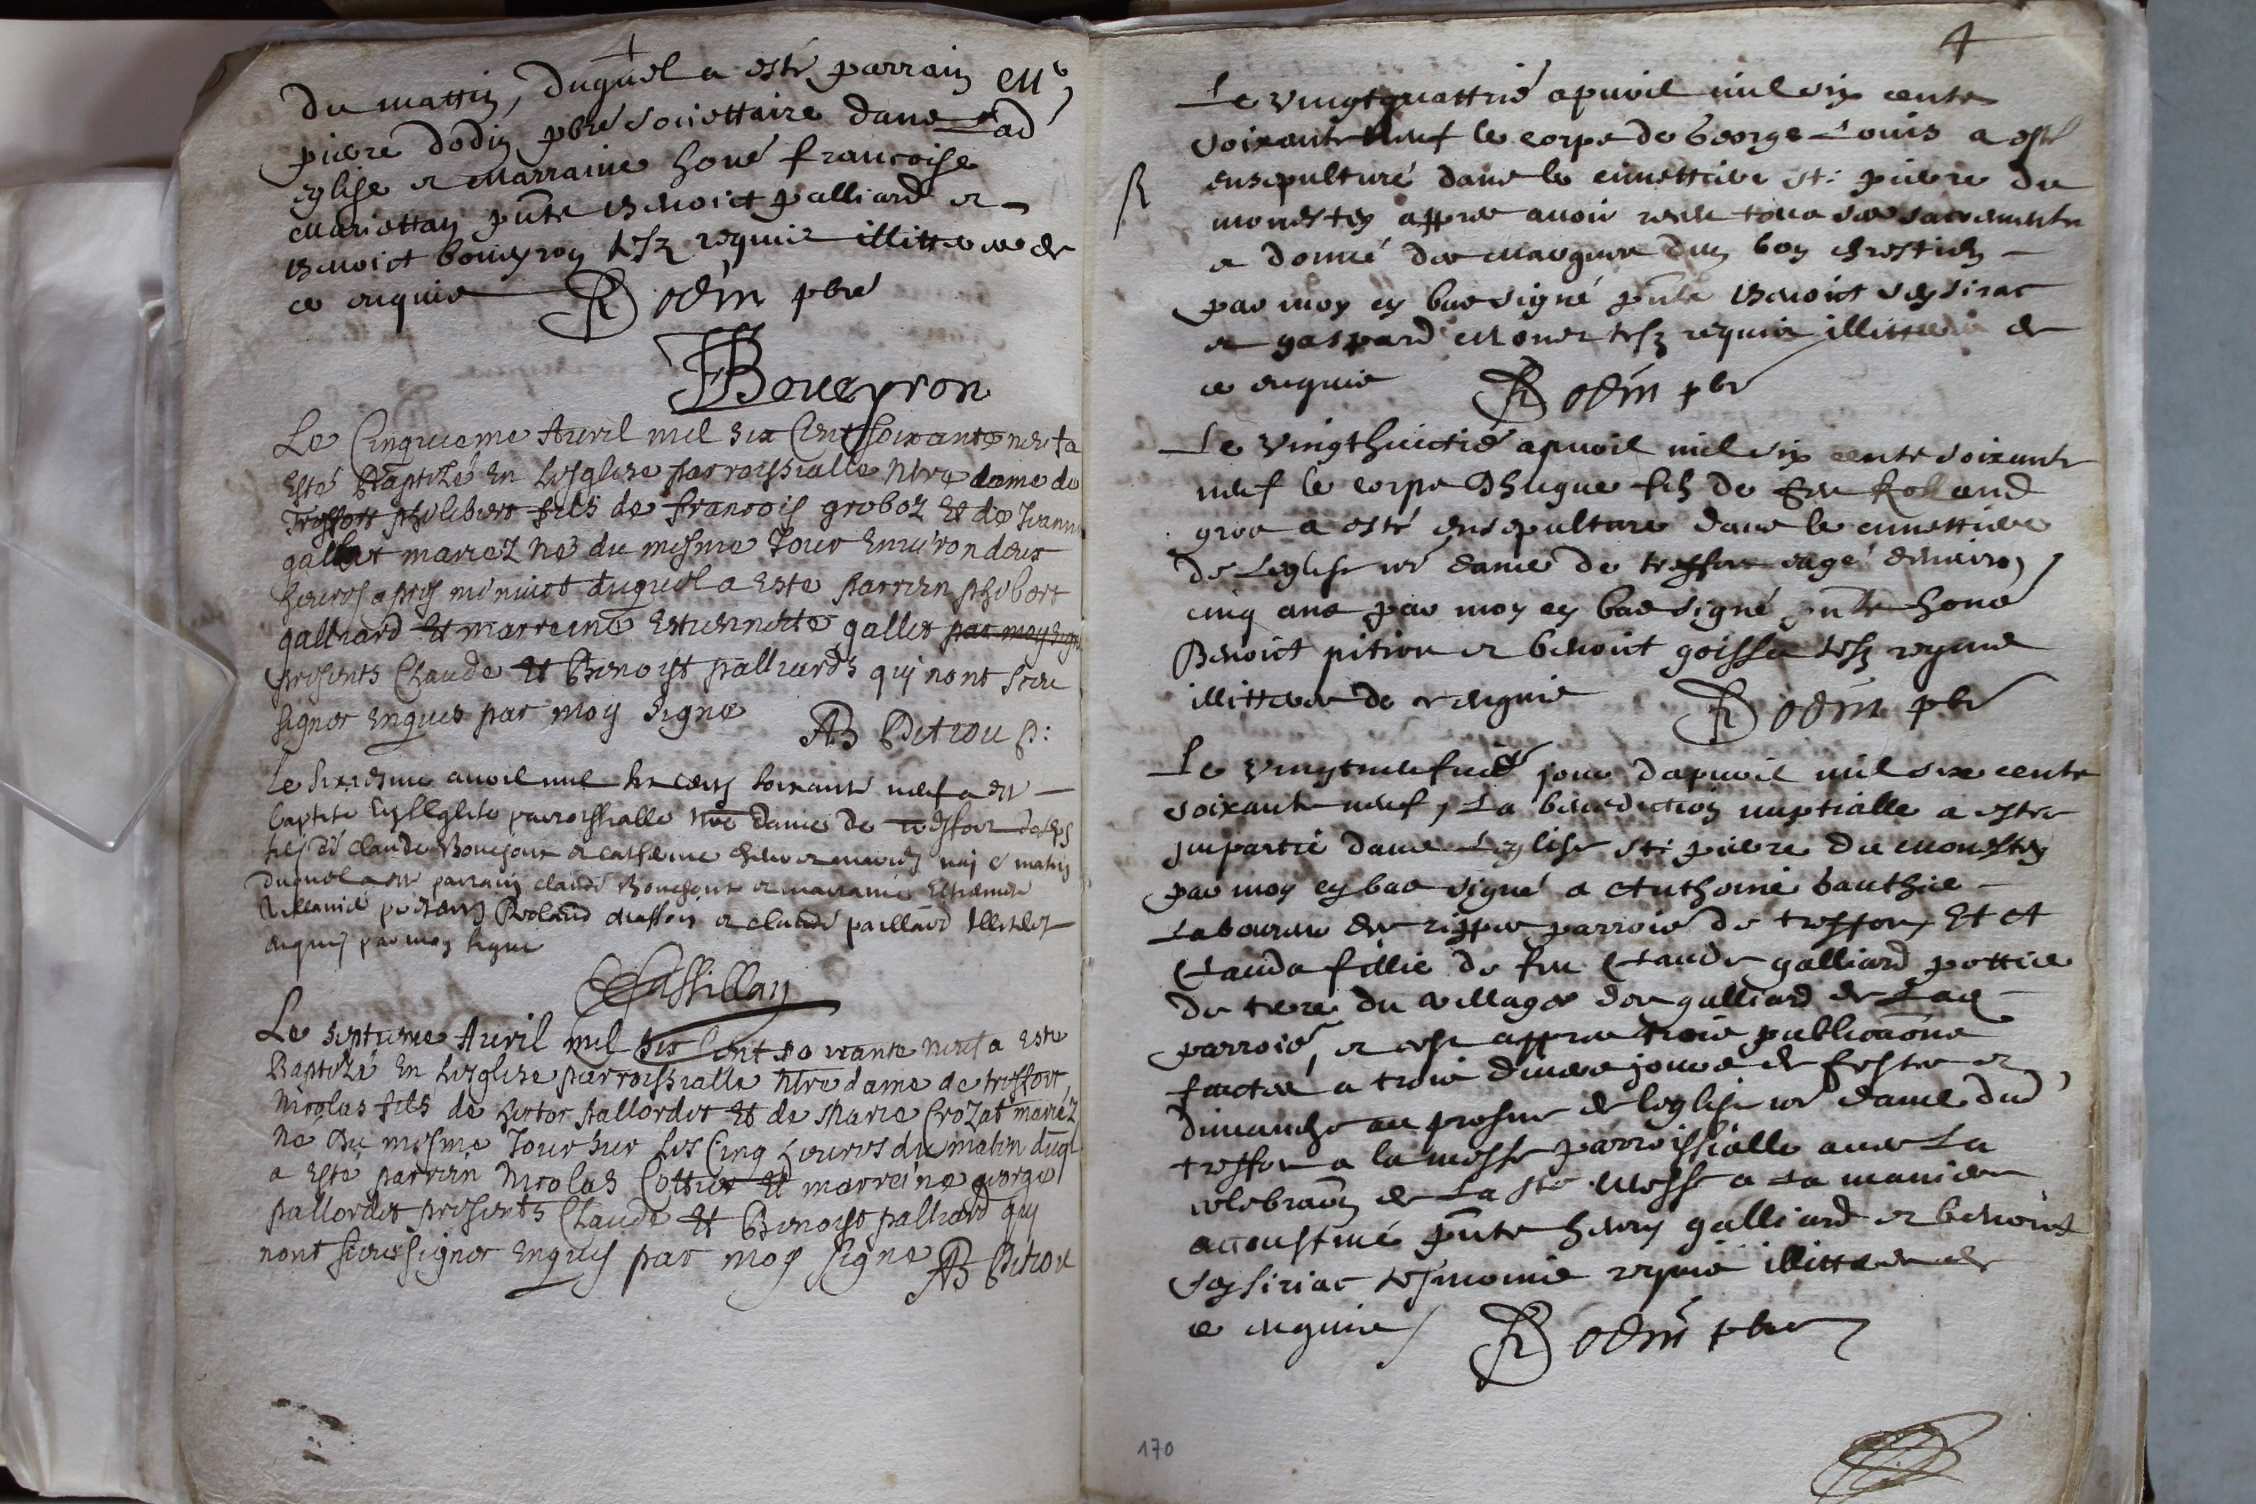 du mattin, duquel a esté parrain
pierre dodin pbre societtaire dans Lad
eglise et marraine honé francoise
Mariettan pnts Benoict palliard et
Benoict boueyron tesz requis illitteres de
ce enquis Dodin pbre
Boueyron
Le Cinquieme Avril mil six Cent soixante neuf a
Esté Baptizé En Lesglize parroissialle Ntre dame de
Treffort philibert fils de francois groboz Et de Jeanne
gallet mariez Né du mesme Jour Environ deux
heures apres minuict duquel a Esté parrein phibert
galliard Et marreine Estiennette gallet par moy signe
presents Claude Et Benoist palliards qui nont sceu
signer Enquis par moy signé
AB Pitiou p:
Le sixiesme avril mil six cents soixante neuf a este
baptisé En Leglise parroissialle Nre dame de treffort Joseph
filz de claude Boucfont et catherine mariez
duquel a este parrain claude Boucfont et marraine
presents Roland et claude paillard Illiteres
enquis par moy signe
Le septieme Avril mil six Cent soixante neuf a Esté
Baptizé En Lesglize parroissialle Ntre dame de treffort
Nicolas fils de hector pallordet Et de Marie Crozat mariez
Né Du mesme Jour sur Les Cinq heures du matin duql
a Esté parrein Nicolas Cottier Et marreine george
pallordet presents Claude Et Benoist palliard qui
nont sceu signer Enquis par moy signe AB Pitiou
4
Le vingtquattrie apvril mil six cents
soixante neuf le corps de George Louis a esté
ensepulturé dans le cimettiere st: pierre du
monestey appres avoir receu tous ses sacrements
et donné des marques dun bon chrestien
par moy cy bas signé pnts Benoict seysiriac
et gaspard Monet tesz requis illitteres de
ce enquis Dodin pbre
Le vingthuictie apvril mil six cents soixante
neuf le corps dhugue filz de feu Rolland
gros a esté ensepulture dans le cimettiere
de Leglise nre dame de treffort eagé denviron
cinq ans par moy cy bas signé pnts honé
Benoict pitiou et benoict goisset tesz requis
illitteres de ce enquis Dodin pbre
Le vingtneufvie jour dapvril mil six cents
soixante neuf, La benediction nuptialle a estee
impartie dans Leglise st: pierre du monestey
par moy cy bas signé a Anthoine bauthier
Laboureur de parroisse de treffort Et A
Clauda fillie de feu Claude galliard pottier
de terre du village des galliard de Lad
parroisse, et cest appres trois publications
faictes a trois divers jours de festes et
dimanche au prosne de leglise nre dame dud
treffort a la messe parroissialle avec La
celebraon de La ste Messe a La maniere
accoustmé pnts henry galliard et benoict
seysiriac tesmoins requis illitteres de
ce enquis Dodin pbre
170